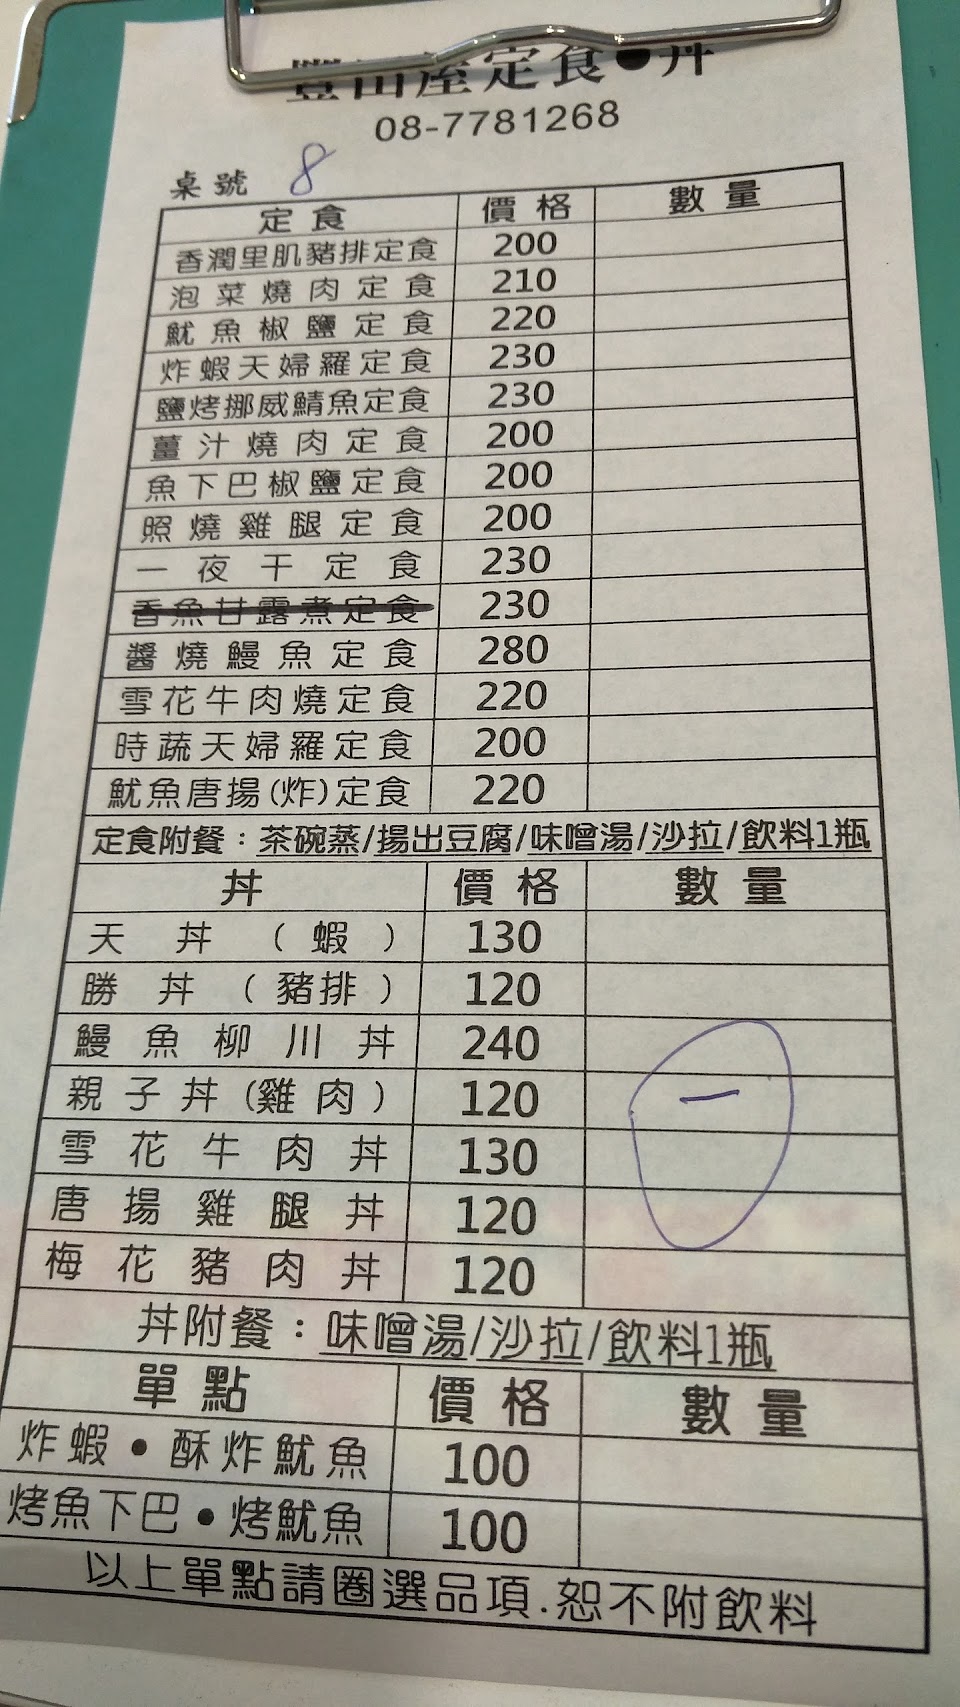 豐田屋定食●丼
08-7781268
桌號 8
定食 價格 數量
香潤里肌豬排定食 200
泡菜燒肉定食 210
魷魚椒鹽定食 220
炸蝦天婦羅定食 230
鹽烤挪威鯖魚定食 230
薑汁燒肉定食 200
魚下巴椒鹽定食 200
照燒雞腿定食 200
一夜干定食 230
香魚甘露煮定食 230
醬燒鰻魚定食 280
雪花牛肉燒定食 220
時蔬天婦羅定食 200
魷魚唐揚(炸)定食 220
定食附餐：茶碗蒸/揚出豆腐/味噌湯/沙拉/飲料1瓶
丼 價格 數量
天丼(蝦) 130
勝丼(豬排) 120
鰻魚柳川丼 240
親子丼(雞肉) 120 一
雪花牛肉丼 130
唐揚雞腿丼 120
梅花豬肉丼 120
丼附餐：味噌湯/沙拉/飲料1瓶
單點 價格 數量
炸蝦●酥炸魷魚 100
烤魚下巴●烤魷魚 100
以上單點請圈選品項.恕不附飲料